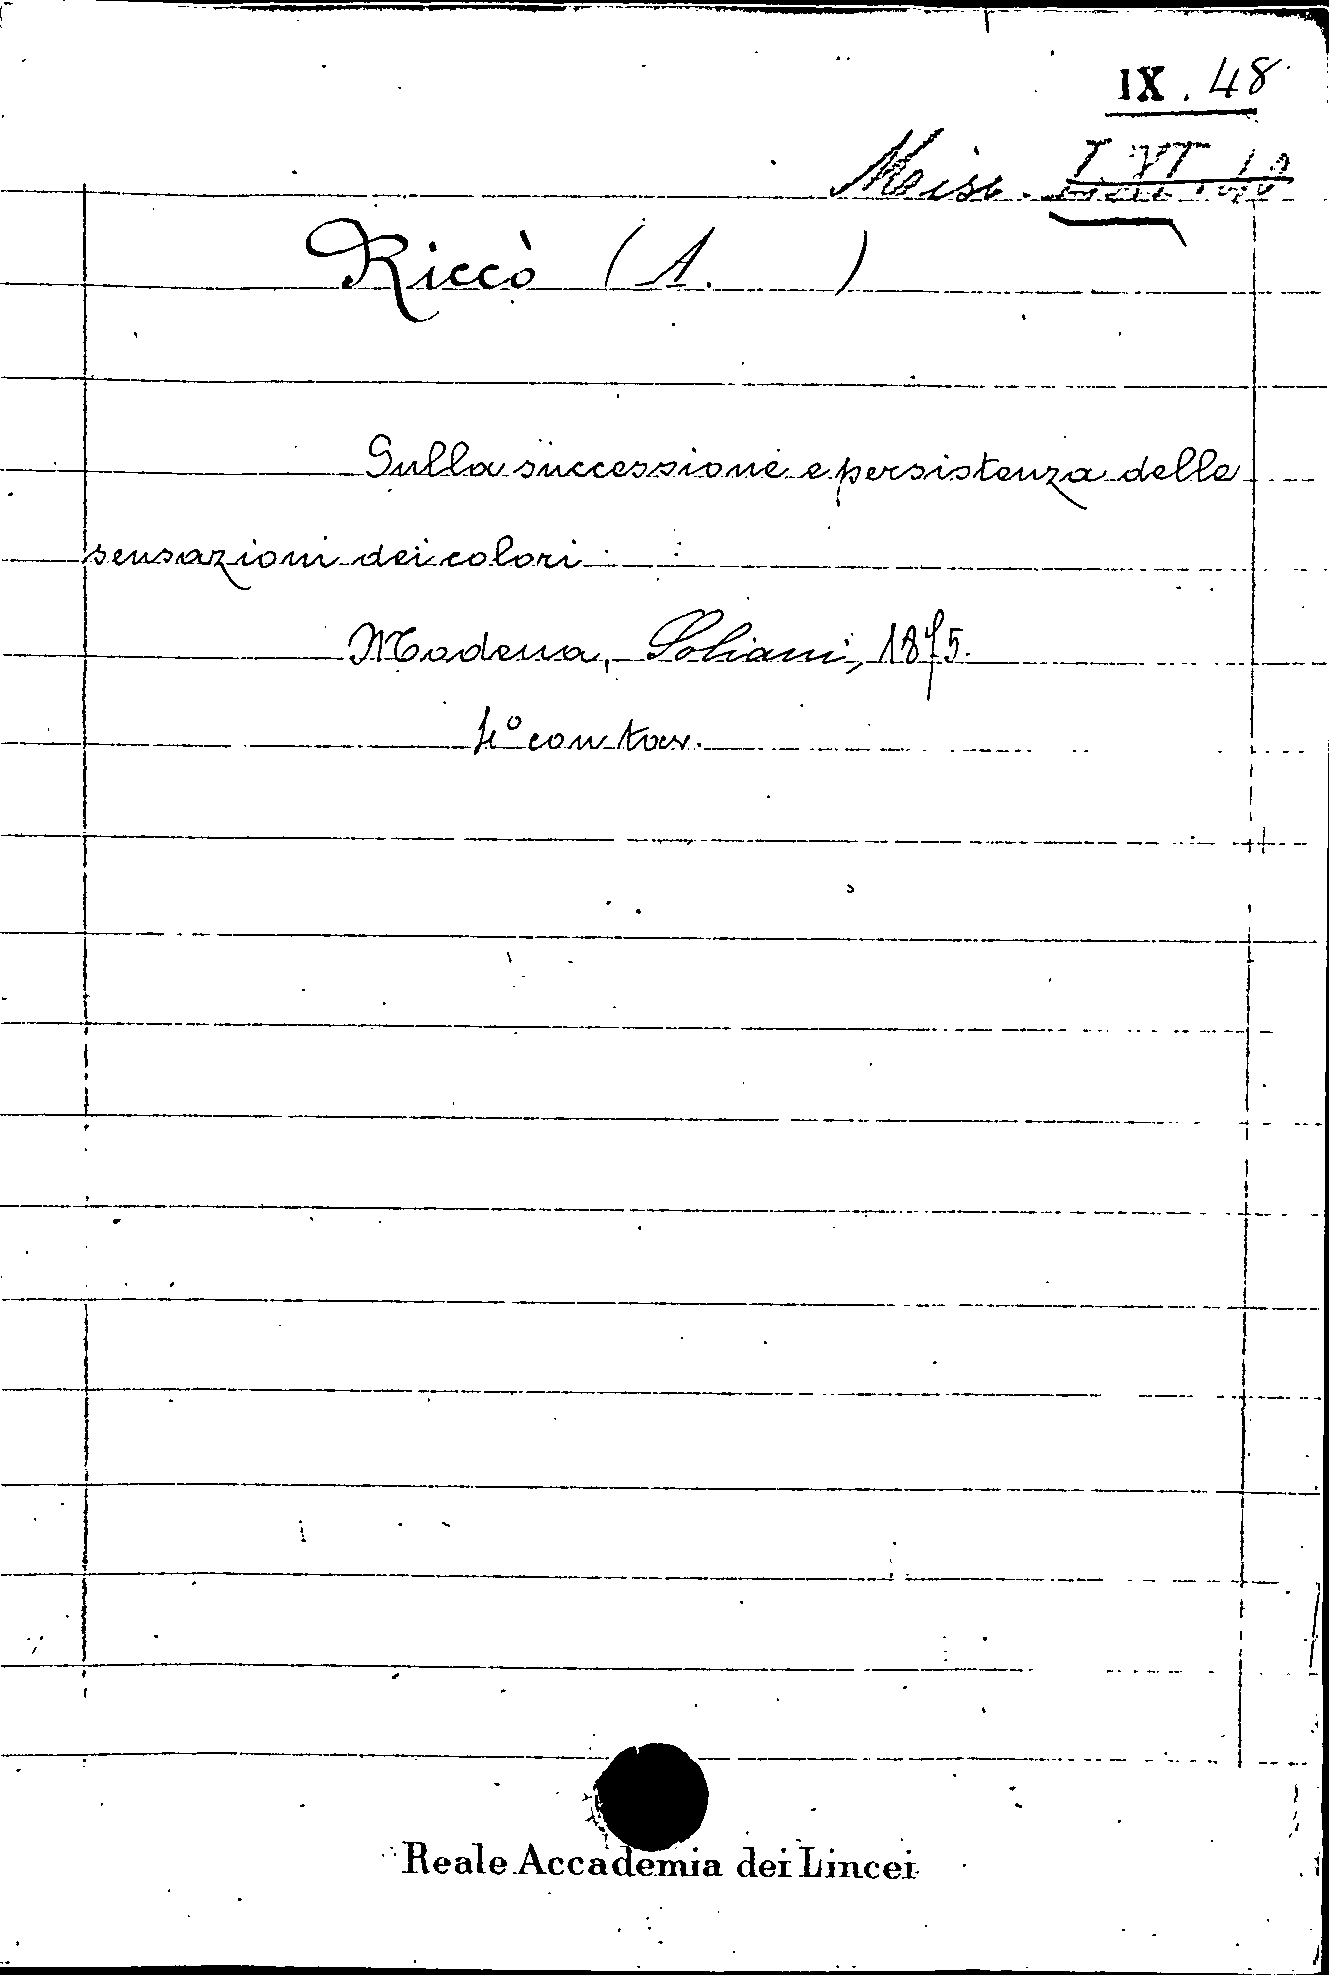 IX. 48
Misc.
Riccò (A. )
Sulla successione e persistenza delle
sensazioni dei colori
Modena, Soliani, 1875.
4° con tav.
Reale Accademia dei Lincei